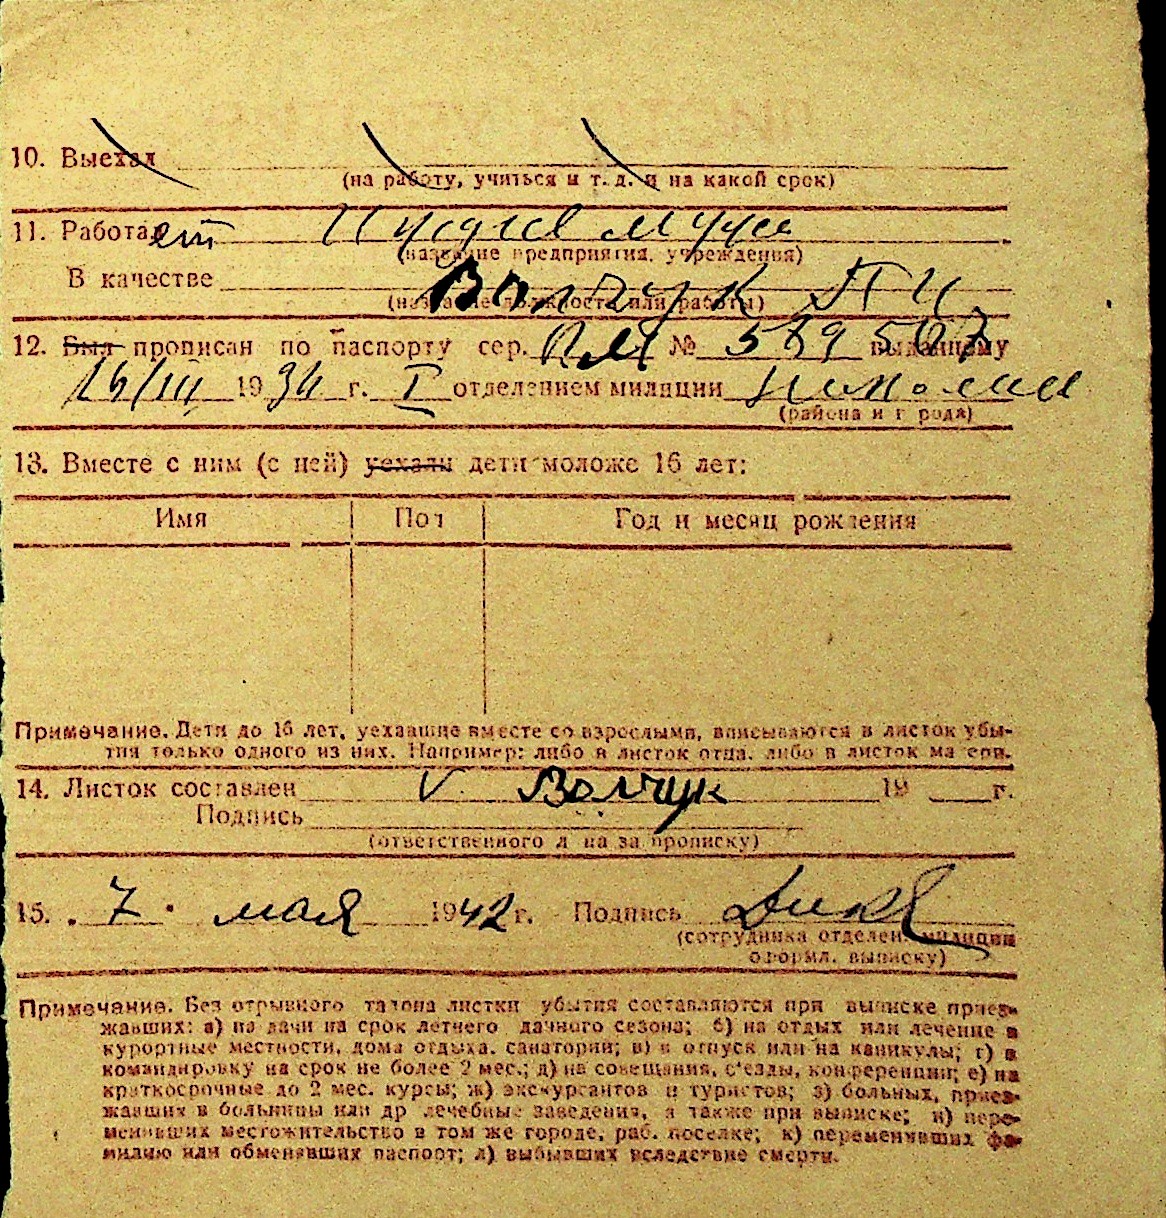 10. Выехал
(на работу, учиться и т. д. и на какой срок)
11. Работает
(название предприятия, учреждения)
В качестве Волчук П И
(название должности или работы)
12. Был прописан по паспорту сер. № 579567 выданному
16/III 1934 г. I отделением милиции
(района и города)
13. Вместе с ним (с ней) уехали дети моложе 16 лет:
Имя Пол Год и месяц рождения
Примечание. Дети до 16 лет, уехавшие вместе со взрослыми, вписываются в листок убы-
тия только одного из них. Например: либо в листок отца, либо в листок матери.
14. Листок составлен V Волчук 19 г.
Подпись
(ответственного лица за прописку)
15. 7 мая 1942 г. Подпись
(сотрудника отделен. милиции
оформл. выписку)
Примечание. Без отрывного талона листки убытия составляются при выписке приез-
жавших: а) на дачи на срок летнего дачного сезона; б) на отдых или лечение в
курортные местности, дома отдыха, санатории; в) в отпуск или на каникулы; г) в
командировку на срок не более 2 мес.; д) на совещания, с'езды, конференции; е) на
краткосрочные до 2 мес. курсы; ж) экскурсантов и туристов; з) больных, приез-
жавших в больницы или др лечебные заведения, а также при выписке; и) пере-
менивших местожительство в том же городе, раб. поселке; к) переменивших фа-
милию или обменявших паспорт; л) выбывших вследствие смерти.